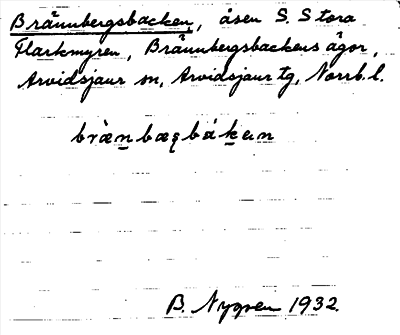 Brännbergsbacken, åsen S. Stora
Flarkmyren, Brännbergsbackens ägor,
Arvidsjaur sn, Arvidsjaur tg, Norrb. l.
bràn̲bæșbák̲ein
B. Nygren 1932.